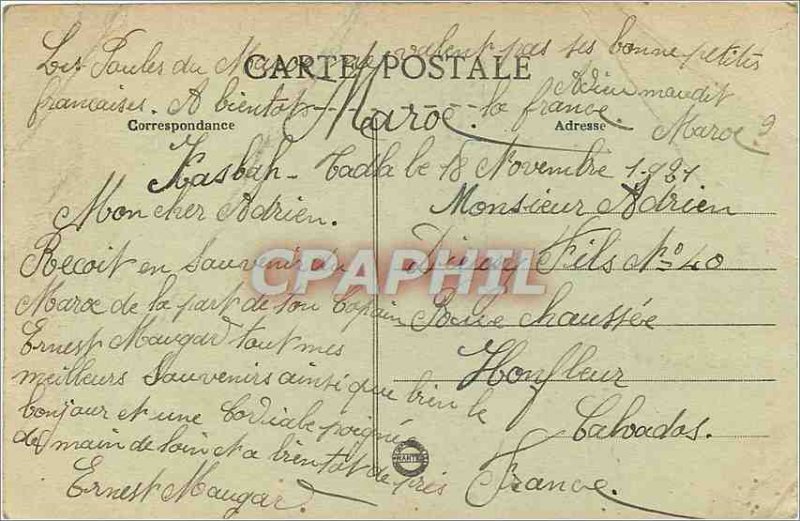 Les Poules du Maroc ne valent pas ses bonne petites
francaises. A bientot la france. Adieu maudit
Maroc.
CARTE POSTALE
Maroc.
Correspondance
Adresse
Kasbah-Tadla le 18 Novembre 1921
Mon cher Adrien.
Recoit en Souvenir du
Maroc de la part de ton Copain
Ernest Maugard tout mes
meilleurs Souvenirs ainsi que bien le
bonjour et une Cordiale poigné
de main de loin et a bientot de près
Ernest Maugard.
Monsieur Adrien
Fils No 40
chaussée
Honfleur
Calvados.
France.
CPAPHIL
NANTES